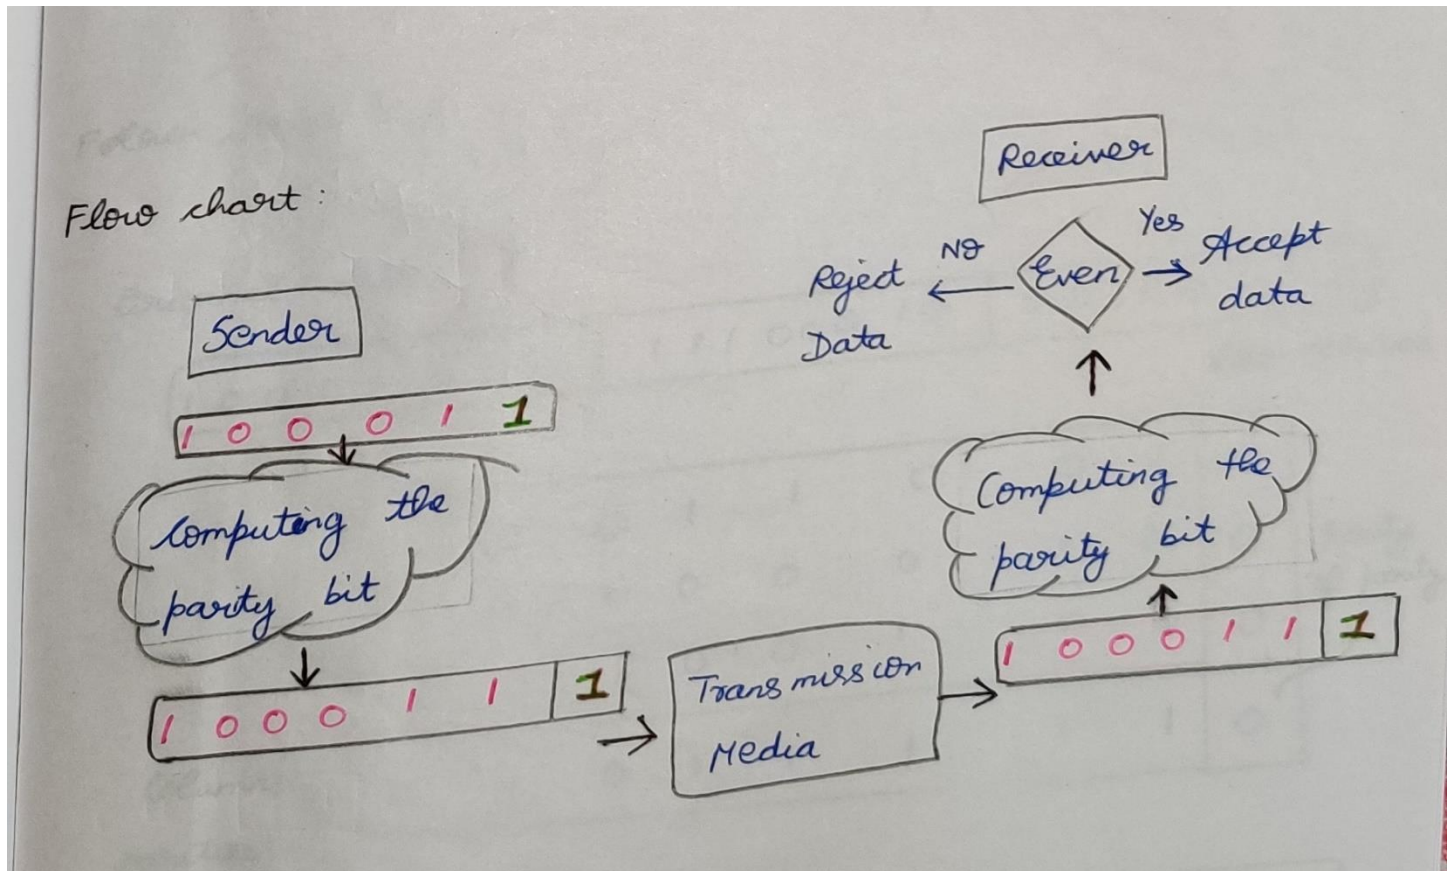 Flow chart :
Sender
1 0 0 0 1 1
Computing the
parity bit
1 0 0 0 1 1 1
Transmission
Media
1 0 0 0 1 1 1
Computing the
parity bit
Even
No
Reject
Data
Yes
Accept
data
Receiver